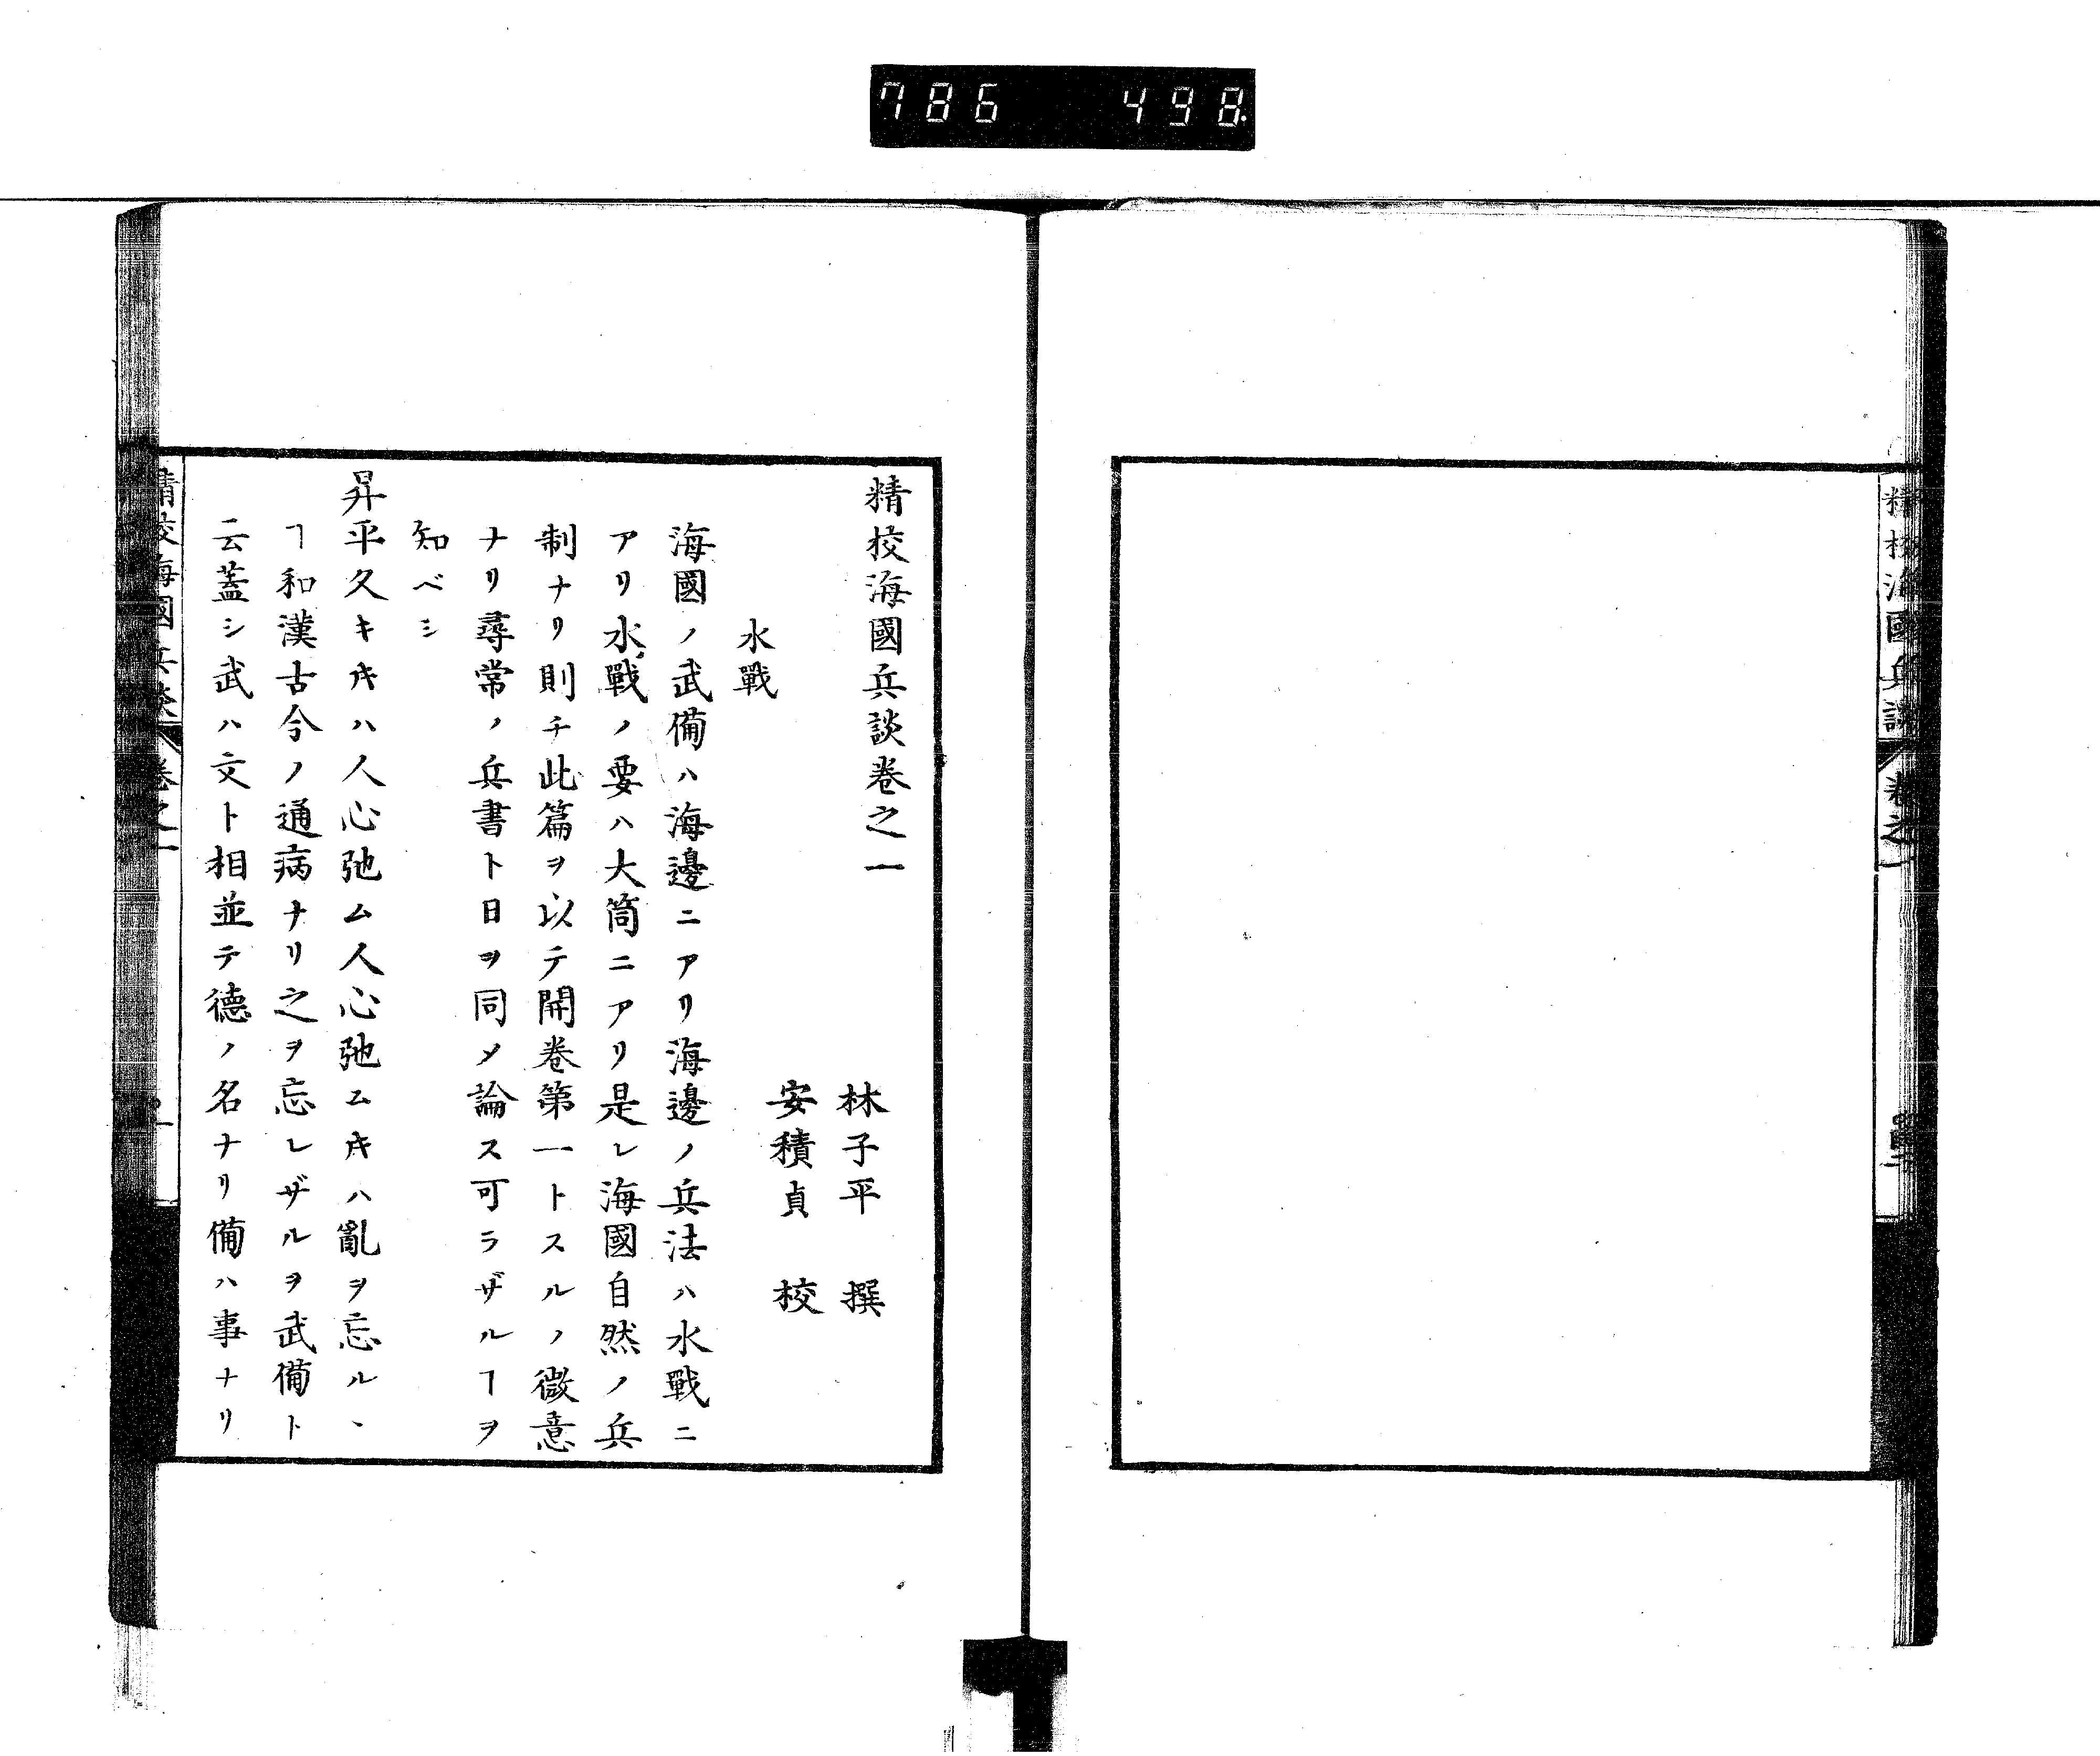 786 498
精校海國兵談
卷之一
精校海國兵談卷之一
林子平 撰
安積貞 校
水戰
海國ノ武備ハ海邊ニアリ海邊ノ兵法ハ水戰ニ
アリ水戰ノ要ハ大筒ニアリ是レ海國自然ノ兵
制ナリ則チ此篇ヲ以テ開卷第一トスルノ微意
ナリ尋常ノ兵書ト日ヲ同メ論ス可ラザルヿヲ
知ベシ
昇平久キキハ人心弛ム人心弛ムキハ亂ヲ忘ルヽ
ヿ和漢古今ノ通病ナリ之ヲ忘レザルヲ武備ト
云蓋シ武ハ文ト相並テ德ノ名ナリ備ハ事ナリ
精校海國兵談
卷之一
一